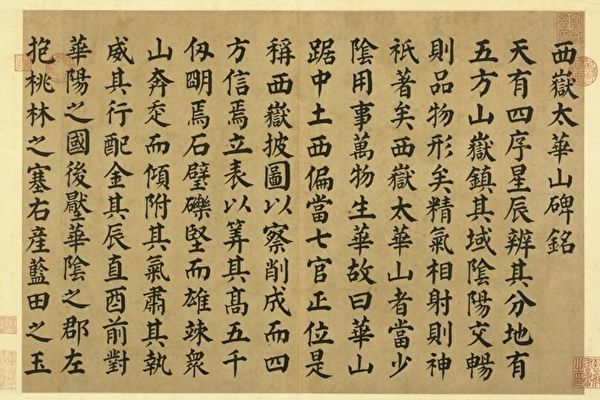 西嶽太華山碑銘
天有四序星辰辨其分地有
五方山嶽鎮其域陰陽交暢
則品物形矣精氣相射則神
祇著矣西嶽太華山者當少
陰用事萬物生華故曰華山
踞中土西偏當七官正位是
稱西嶽披圖以察削成而四
方信焉立表以筭其髙五千
仭眀焉石壁礫堅而雄竦衆
山奔走而傾附其氣肅其執
威其行配金其辰直酉前對
華陽之國後壓華陰之郡左
抱桃林之塞右産藍田之玉